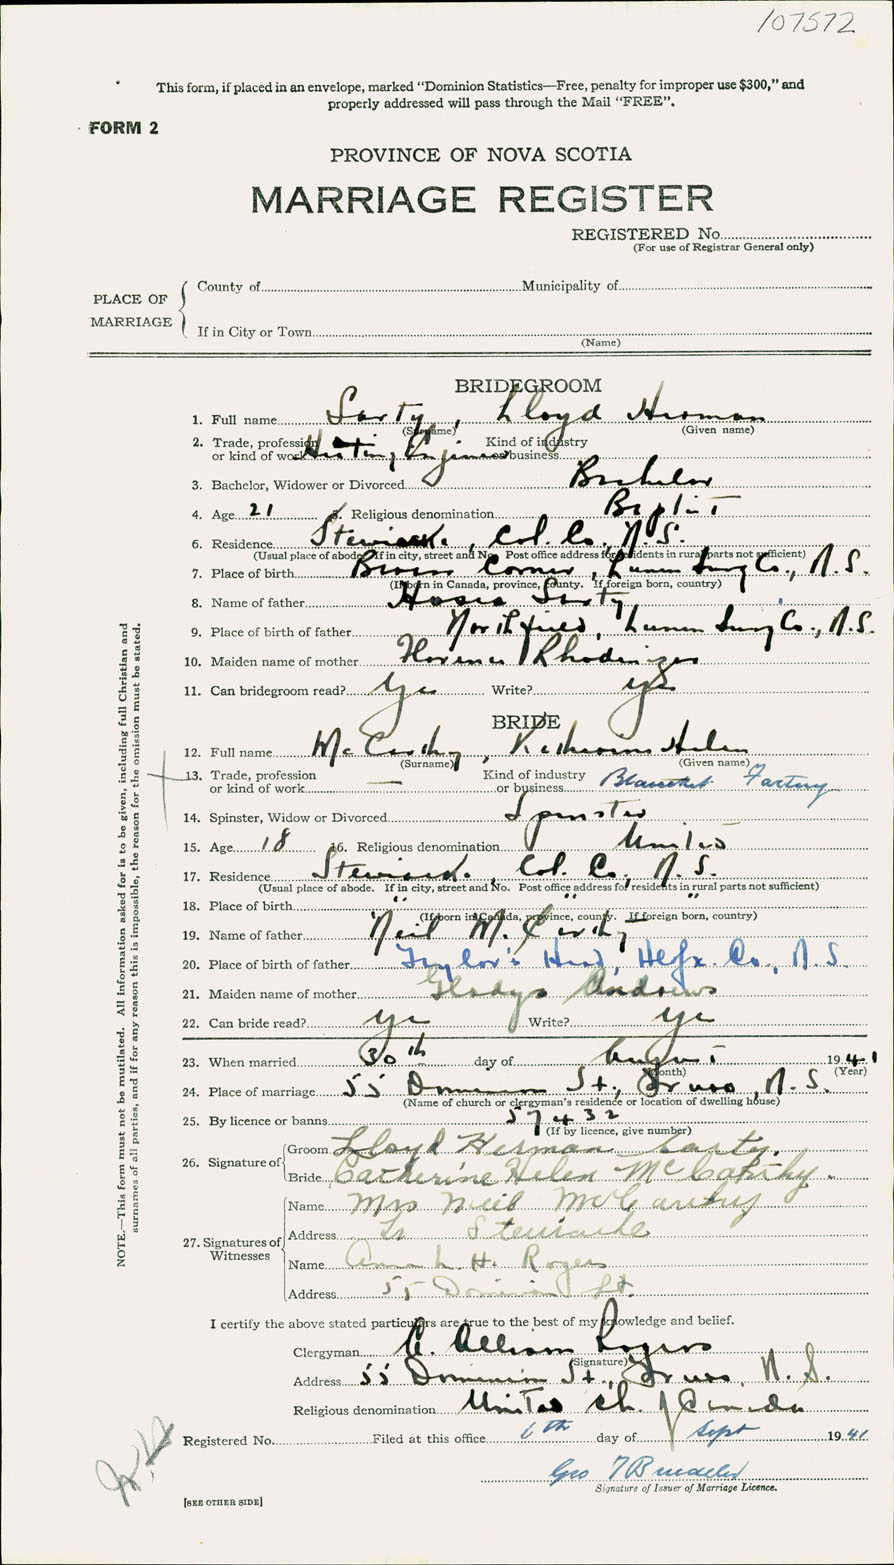 107572
This form, if placed in an envelope, marked "Dominion Statistics—Free, penalty for improper use $300," and
properly addressed will pass through the Mail "FREE".
FORM 2
PROVINCE OF NOVA SCOTIA
MARRIAGE REGISTER
REGISTERED No.
(For use of Registrar General only)
PLACE OF MARRIAGE
County of Municipality of
If in City or Town
(Name)
BRIDEGROOM
1. Full name Sarty, Lloyd Herman
(Surname) (Given name)
2. Trade, profession or kind of work Heating Engineer Kind of industry or business
3. Bachelor, Widower or Divorced Bachelor
4. Age 21 5. Religious denomination Baptist
6. Residence Stewiacke, Col. Co., N.S.
(Usual place of abode. If in city, street and No. Post office address for residents in rural parts not sufficient)
7. Place of birth Corner, Lunenburg Co., N.S.
(If born in Canada, province, county. If foreign born, country)
8. Name of father Hosea Sarty
9. Place of birth of father Northfield, Lunenburg Co., N.S.
10. Maiden name of mother Florence Rhodenizer
11. Can bridegroom read? Yes Write? yes
BRIDE
12. Full name McCarthy, Katherine Helen
(Surname) (Given name)
13. Trade, profession or kind of work — Kind of industry or business Blanket Factory
14. Spinster, Widow or Divorced Spinster
15. Age 18 16. Religious denomination United
17. Residence Stewiacke, Col. Co., N.S.
(Usual place of abode. If in city, street and No. Post office address for residents in rural parts not sufficient)
18. Place of birth " " "
(If born in Canada, province, county. If foreign born, country)
19. Name of father Neil McCarthy
20. Place of birth of father Taylor's Head, Hfx Co., N.S.
21. Maiden name of mother Gladys Andrews
22. Can bride read? Yes Write? Yes
23. When married 30th day of August 1941
(Month) (Year)
24. Place of marriage 55 Dominion St., Truro, N.S.
(Name of church or clergyman's residence or location of dwelling house)
25. By licence or banns 57432
(If by licence, give number)
26. Signature of
Groom Lloyd Herman Sarty.
Bride Catherine Helen McCarthy.
27. Signatures of Witnesses
Name Mrs Neil McCarthy
Address Stewiacke
Name Anna L. H. Rogers
Address 55 Dominion St.
I certify the above stated particulars are true to the best of my knowledge and belief.
Clergyman A. Allison Rogers
(Signature)
Address 55 Dominion St., Truro, N.S.
Religious denomination United Ch. of Canada
Registered No. Filed at this office 6th day of Sept 1941
Geo
Signature of Issuer of Marriage Licence.
[SEE OTHER SIDE]
NOTE.—This form must not be mutilated. All information asked for is to be given, including full Christian and
surnames of all parties, and if for any reason this is impossible, the reason for the omission must be stated.